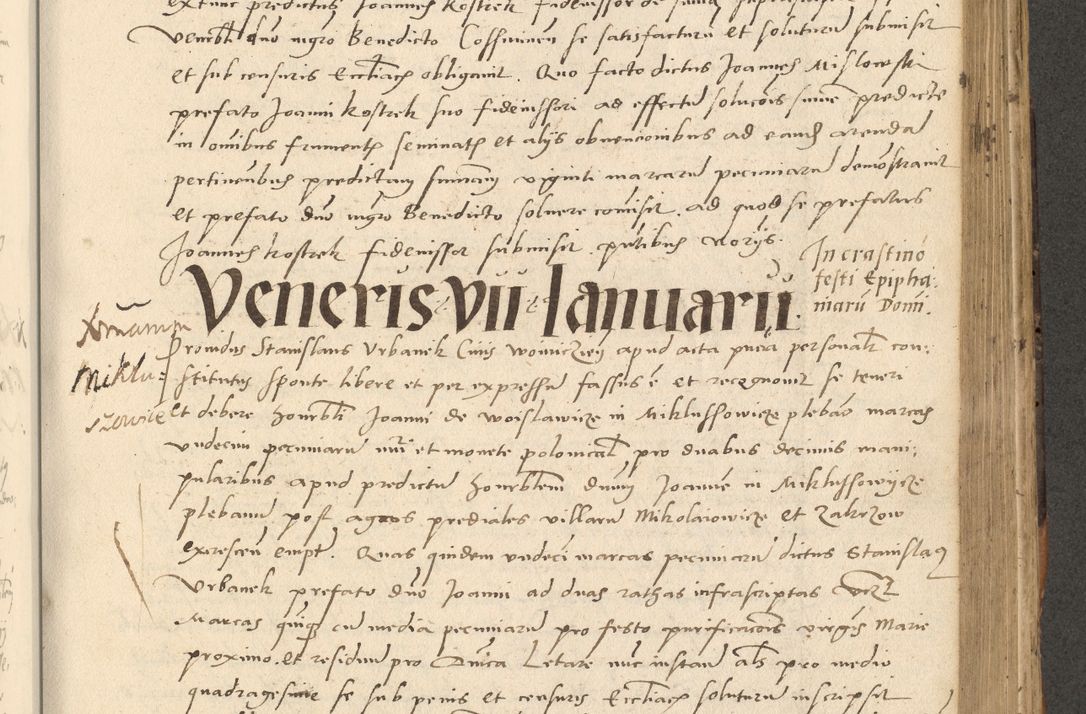 extunc predictus Joannes Kostrek fideiussor de
venerbli dno mgro Benedicto Cossminen se satisfacturu et soluturu submisit
et sub censuris Ecclîacz obligauit. Quo facto dictus Joannes Mislowski
prefato Joanni Kostrek suo fideiussori ad effectu solucois sume predicte
in omibus frumentz seminatz et alijs obuencionibus ad eand arendā
pertinentibus predictam sumam viginti marcaru pecuniaru demonstrauit
et prefato dno mgro Benedicto soluere comisit. ad quod se prefatus
Joannes Kostrek fideiussor submisit. pntibus vorijs.
In crastino
festi Epipha:
niaru Domi.
Veneris vii Ianuarii
Miklu=
szowice
Prouidus Stanislaus Vrbanek Ciuis Woiniczien apud acta pnta personalr con:
stitutus sponte libere et per expressu fassus e et recognouit se teneri
et debere honrbli Joanni de Woislawicze in Miklussowicze plebāo marcas
vndecim pecuniaru nūi et monete polonicalr pro duabus decimis mani:
pularibus apud predictu honrblem dnum Joannē in Miklussowycze
plebanu post agros prediales villaru Mikolaiowicze et Zakrzow
excrescen empt. Quas quidem vndeci marcas pecuniaru dictus Stanislaus
Vrbanek prefato dno Joanni ad duas rathas infrascriptas Vczt
Marcas quiqz cu media pecuniaru pro festo purificacois virgis Marie
proximo. et residuu pro Dnica Letare nuc instan als pro medio
quadragesime se sub penis et censuris Ecclîacz soluturu inscripsit